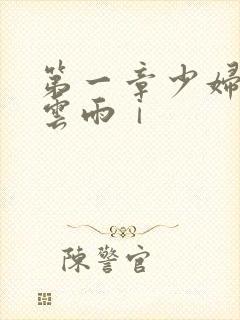 第一章少婦
雲雨｜
陳警官